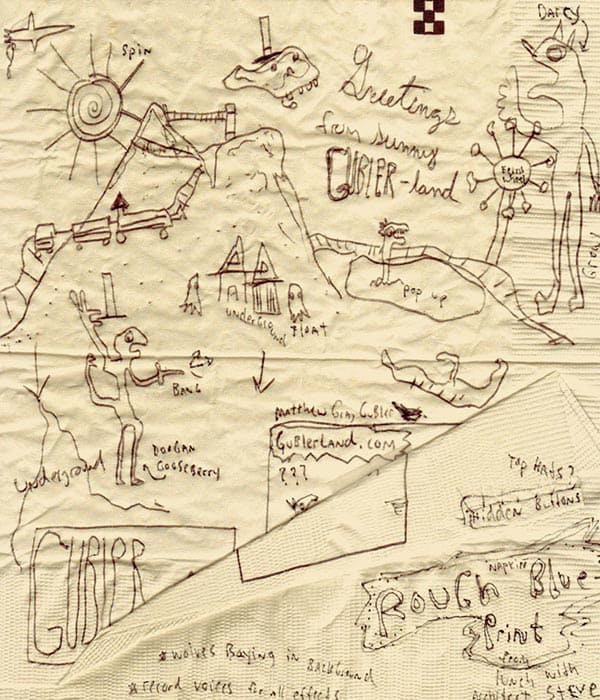 Darcy
Spin
Greetings
from sunny
GUBLER-land
Ferris
Wheel
Growl
pop up
underground
Float
BANG
Matthew Gray Gubler
GUBlerLAND.com
???
DOOGAN
GOOSEBERRY
Underground
Top Hats?
Hidden Buttons
GUBLER
NAPKIN
ROUGH Blue-
Print
from
Lunch with
Architect Steve
*wolves Baying in BackGround
*record voices for all effects